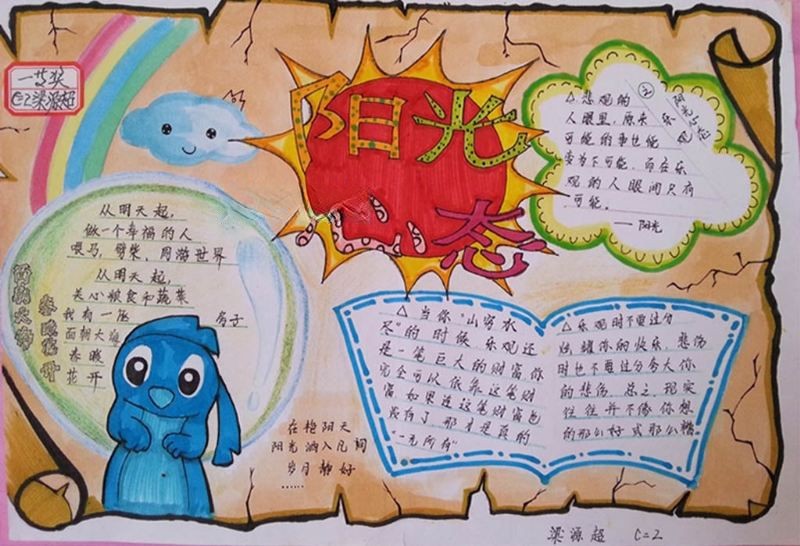 一等奖
C=2梁源超
阳光
心态
从明天起，
做一个幸福的人
喂马，劈柴，周游世界
从明天起，
关心粮食和蔬菜
我有一座 房子
面朝大海
春暖
花开
面朝大海
春暖花开
△悲观的
人眼里，原来
可能的事也能
变为不可能，而在乐
观的人眼间只有
可能。
——阳光
△当你"山穷水
尽"的时候，乐观还
是一笔巨大的财富你
完全可以依靠这笔财
富，如果连这笔财富也
没有了，那才是真的
"一无所有"
△乐观时不要过分
炫耀你的快乐，悲伤
时也不要过分夸大你
的悲伤，总之，现实
往往并不像你想
的那么好或那么糟
在艳阳天
阳光洒入凡间
岁月静好
……
梁源超 C=2